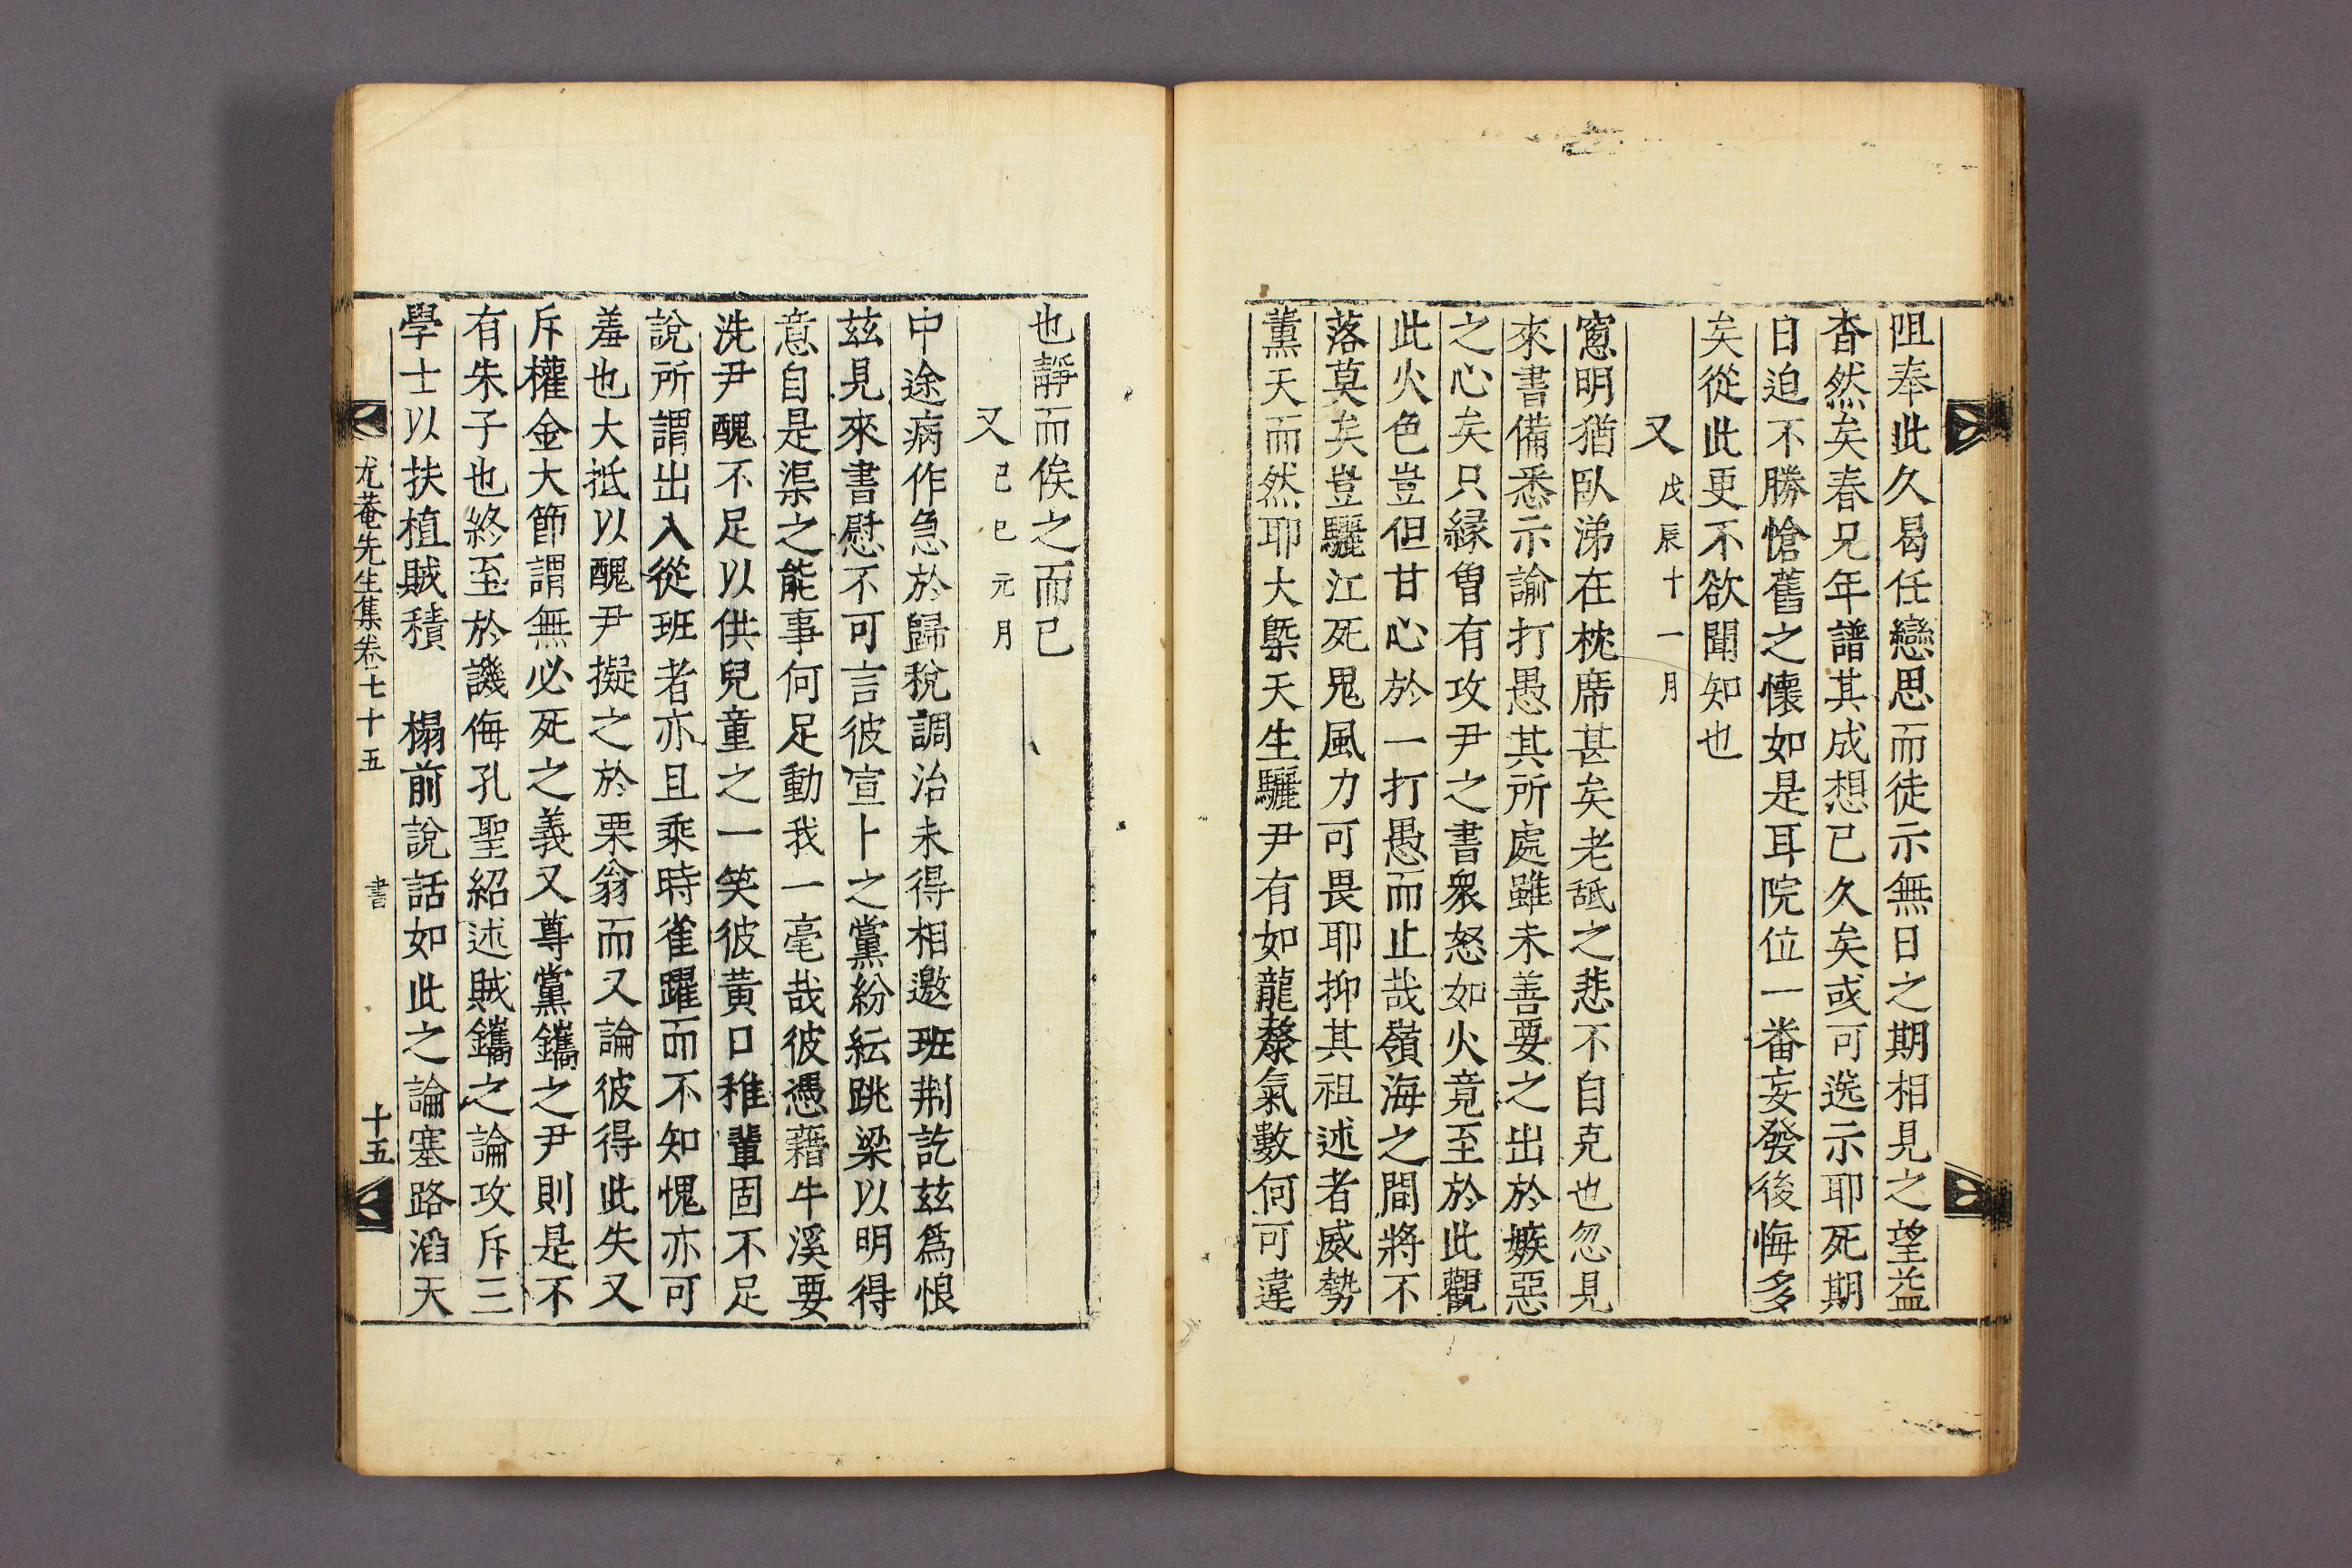 阻奉此久曷任戀思而徒示無日之期相見之望益
杳然矣春兄年譜其成想已久矣或可選示耶死期
日迫不勝愴舊之懷如是耳院位一番妄發後悔多
矣從此更不欲聞知也
又戊辰十一月
窻明猶臥涕在枕席甚矣老䑛之悲不自克也忽見
來書備悉示諭打愚其所處雖未善要之出於嫉惡
之心矣只緣曾有攻尹之書衆怒如火竟至於此觀
此火色豈但甘心於一打愚而止哉嶺海之間將不
落莫矣豈驪江死鬼風力可畏耶抑其祖述者威勢
薰天而然耶大槩天生驪尹有如龍漦氣數何可違
也靜而俟之而已
又己巳元月
中途病作急於歸稅調治未得相邀班荆訖玆爲恨
玆見來書慰不可言彼宣卜之黨紛紜跳梁以明得
意自是渠之能事何足動我一毫哉彼憑藉牛溪要
洗尹醜不足以供兒童之一笑彼黃口稚輩固不足
說所謂出入從班者亦且乘時雀躍而不知愧亦可
羞也大抵以醜尹擬之於栗翁而又論彼得此失又
斥權金大節謂無必死之義又尊黨鑴之尹則是不
有朱子也終至於譏侮孔聖紹述賊鑴之論攻斥三
學士以扶植賊積　榻前說話如此之論塞路滔天
尤菴先生集卷七十五　書　十五